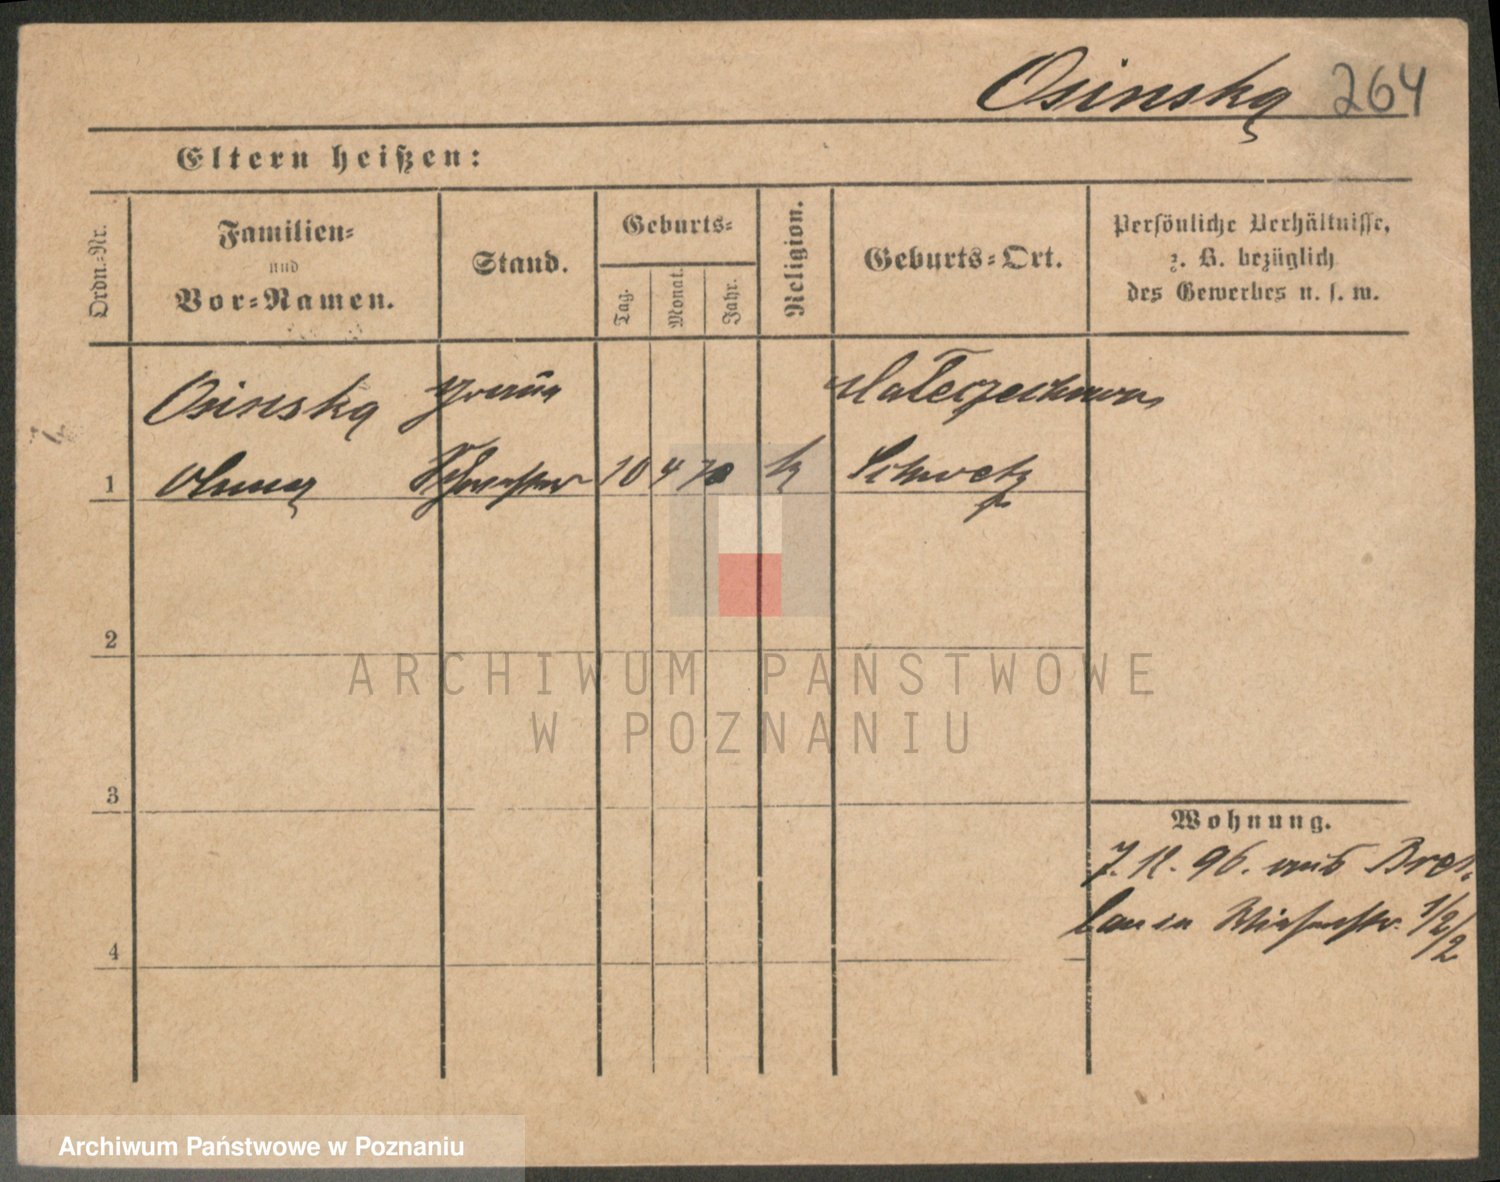 Osinska 264
Eltern heißen:
Ordn.-Nr.
Familien-
und
Vor-Namen.
Stand.
Geburts-
Tag.
Monat.
Jahr.
Religion.
Geburts-Ort.
Persönliche Verhältnisse,
z. B. bezüglich
des Gewerbes u. s. w.
Osinska
1 10 4 k Schwetz
2
3
4
Wohnung.
7.12.96. aus Bres-
lau 1/2/2
ARCHIWUM PAŃSTWOWE
W POZNANIU
Archiwum Państwowe w Poznaniu